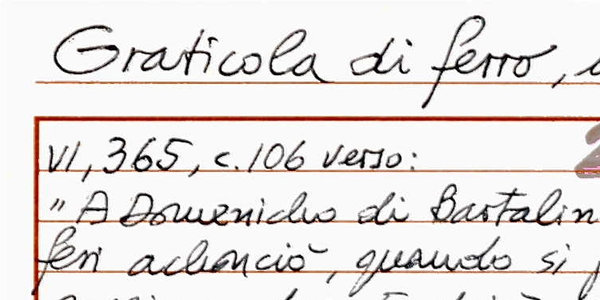 Graticola di ferro,
VI, 365, c. 106 verso:
"A Domenicho di Bartalin
feri achonciò, quando si